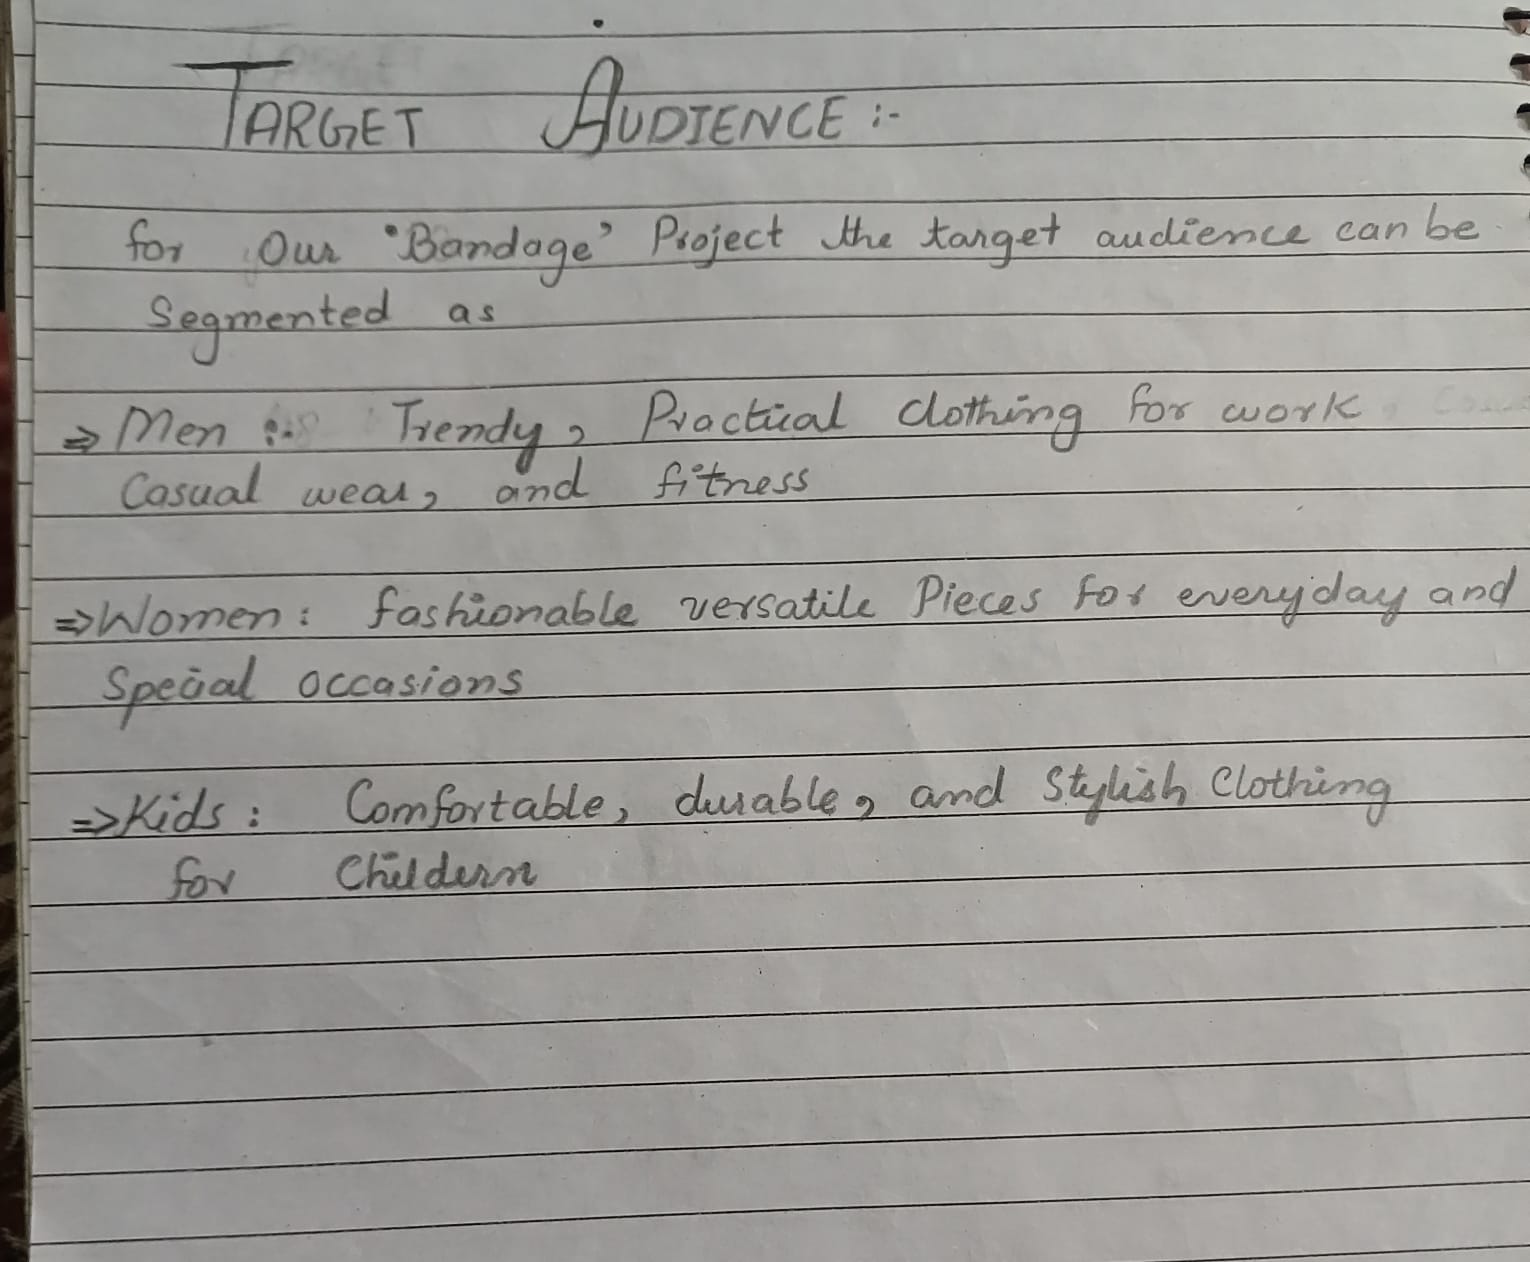 TARGET AUDIENCE :-
for Our "Bandage" Project the target audience can be
Segmented as
⇒ Men :- Trendy, Practical Clothing for work
Casual wear, and fitness
⇒Women: fashionable versatile Pieces for everyday and
Special occasions
⇒Kids: Comfortable, durable, and Stylish Clothing
for Childern